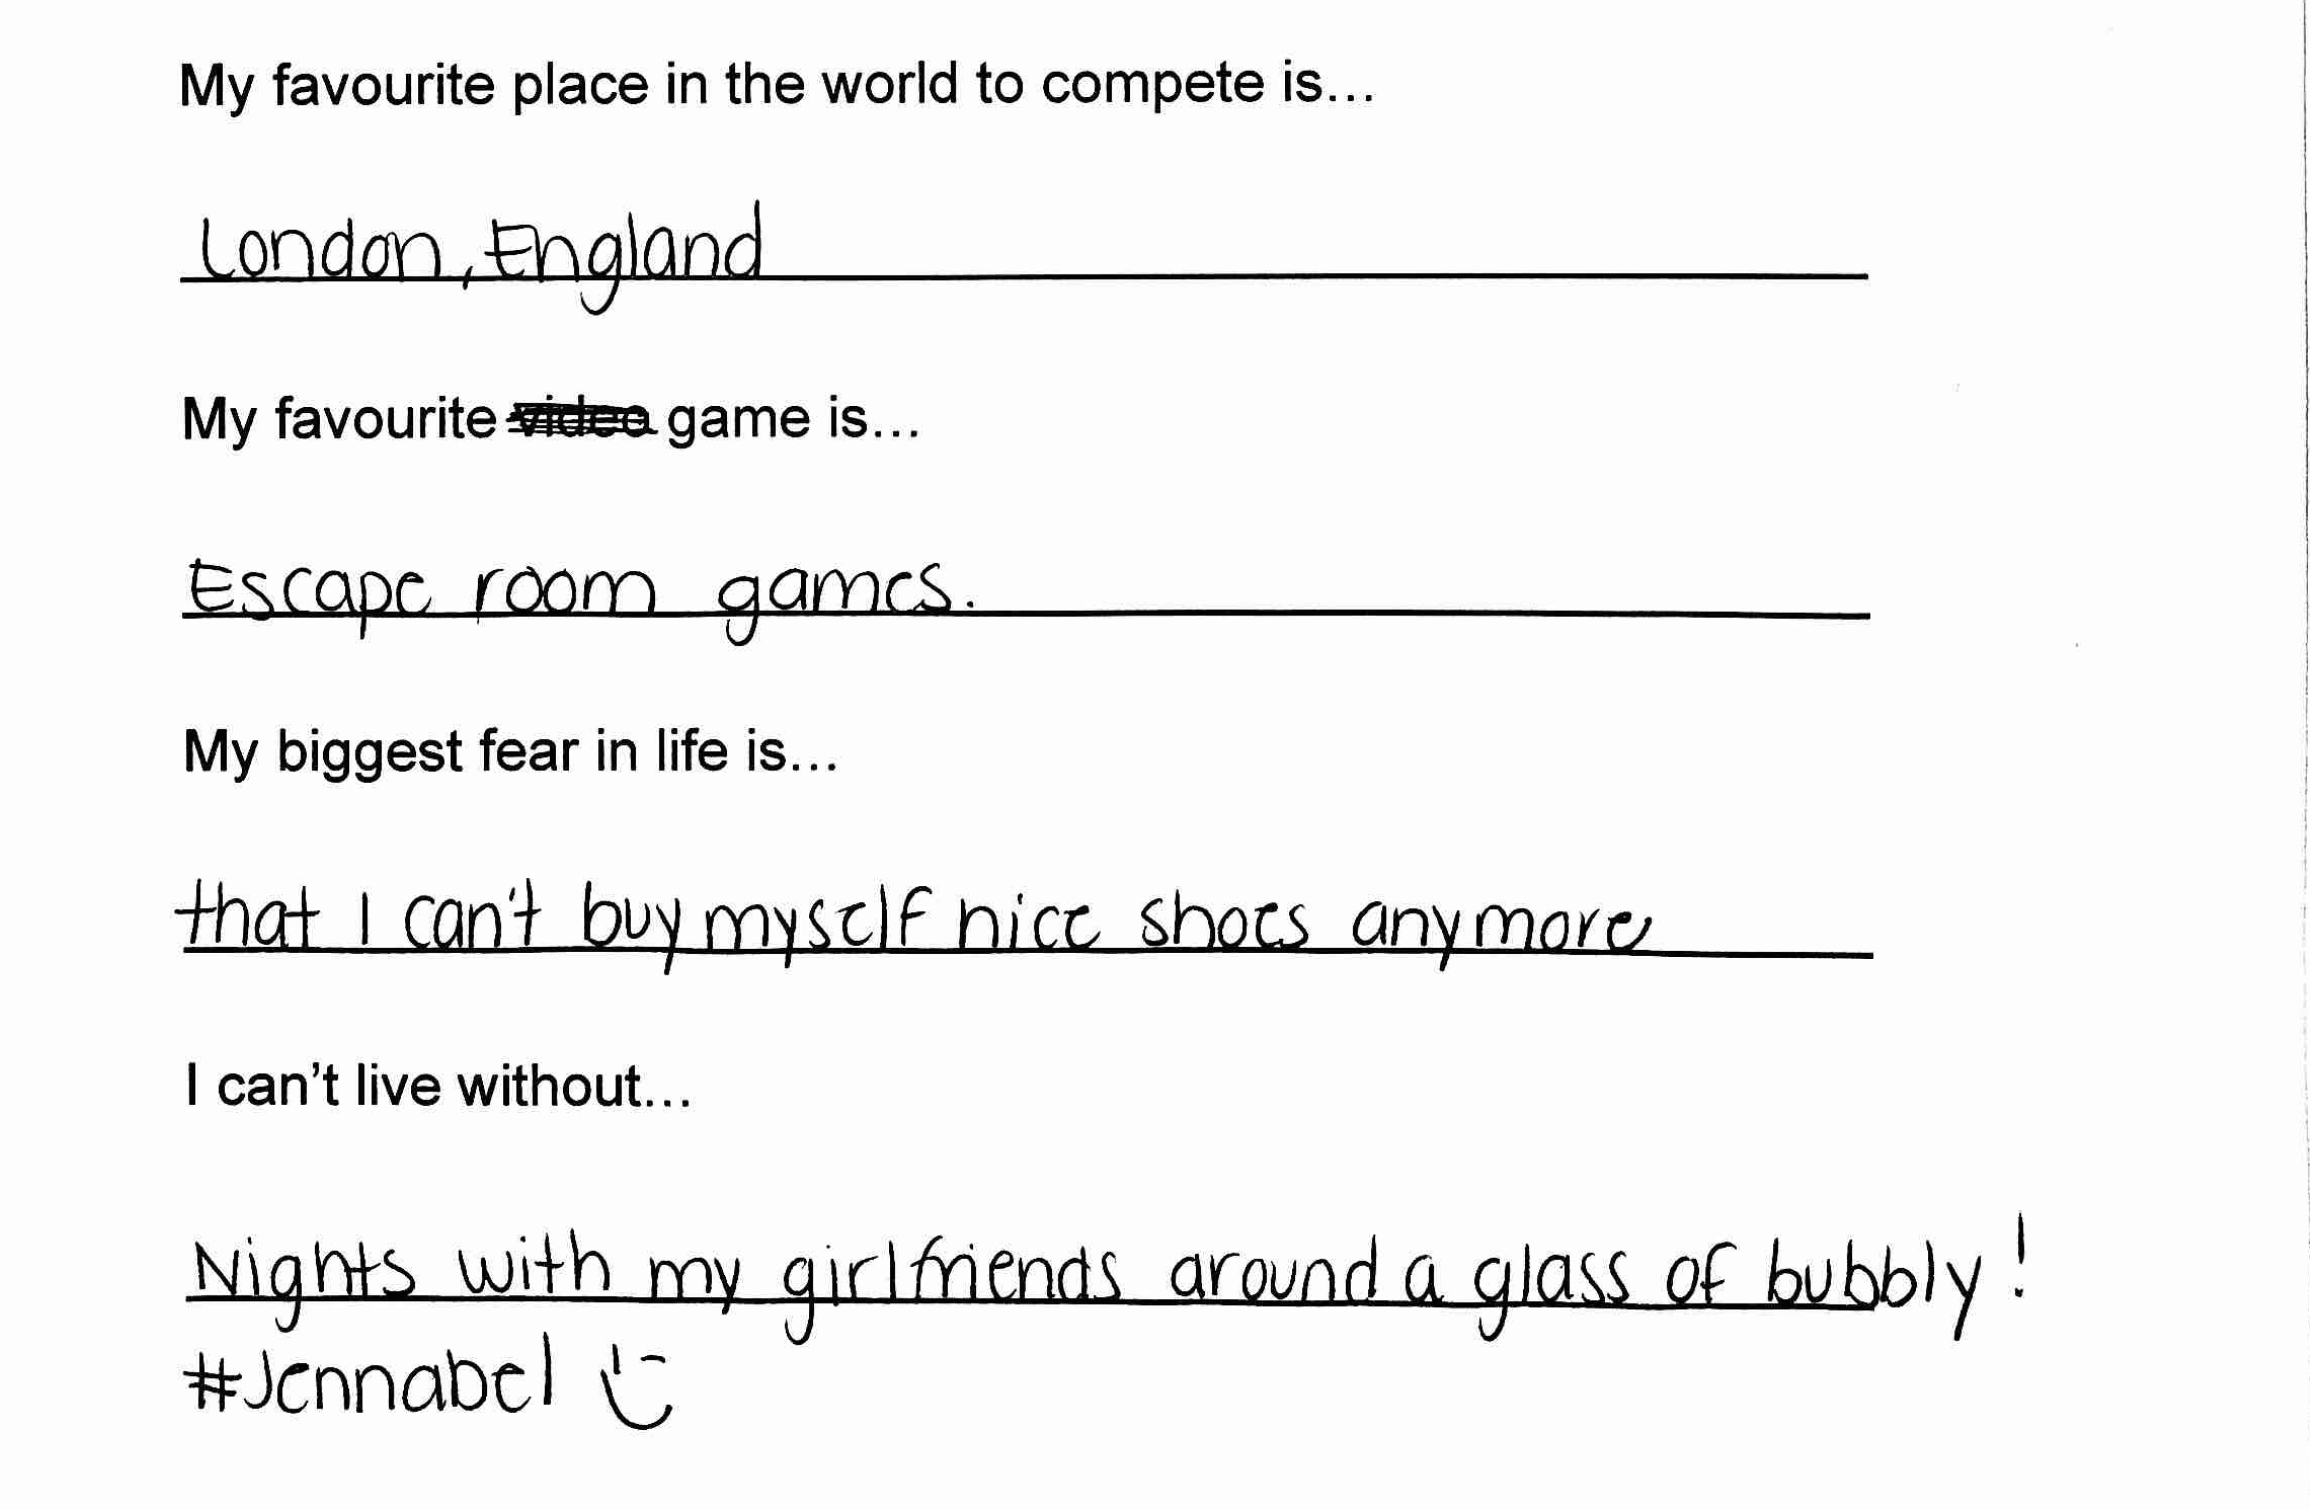 My favourite place in the world to compete is...
London, England
My favourite video game is...
Escape room games.
My biggest fear in life is...
that I can't buy myself nice shoes anymore
I can't live without...
Nights with my girlfriends around a glass of bubbly!
#Jennabel